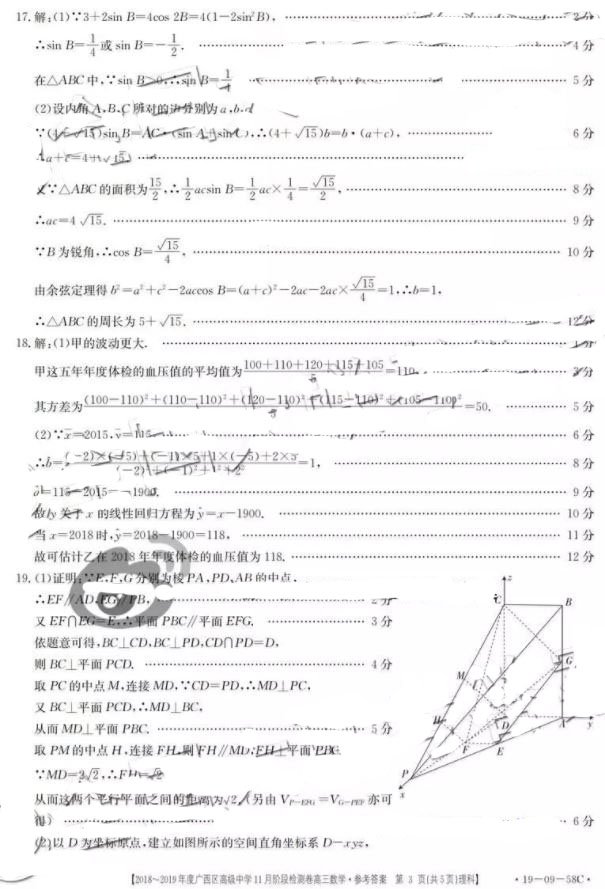 17. 解:(1)∵3+2sin B=4cos 2B=4(1-2sin²B), 2分
∴sin B=1/4或 sin B=-1/2. 4分
在△ABC 中,∵sin B>0,∴sin B=1/4 5分
(2)设内角 A,B,C 所对的边分别为 a,b,c
∵(4+√15)sin B= (sin A+sin C),∴(4+√15)b=b·(a+c), 6分
∴a+c=4+√15.
又∵△ABC 的面积为√15/2,∴1/2acsin B=1/2ac×1/4=√15/2, 8分
∴ac=4√15. 9分
∵B 为锐角,∴cos B=√15/4, 10分
由余弦定理得 b²=a²+c²-2accos B=(a+c)²-2ac-2ac×√15/4=1,∴b=1,
∴△ABC 的周长为 5+√15. 12分
18. 解:(1)甲的波动更大.
甲这五年年度体检的血压值的平均值为(100+110+120+115+105)/5=110,
其方差为[(100-110)²+(110-110)²+(120-110)²+(115-110)²+(105-110)²]/5=50. 5分
(2)∵x̄=2015, 6分
∴b̂=[(-2)×(-5)+(-1)×5+1×(-5)+2×5]/[(-2)²+(-1)²+1²+2²]=1, 8分
â=115-2015=-1900. 9分
故 y 关于 x 的线性回归方程为ŷ=x-1900. 10分
当 x=2018 时,ŷ=2018-1900=118, 11分
故可估计乙在 2018 年年度体检的血压值为 118. 12分
19. (1)证明:∵E,F,G 分别为棱 PA,PD,AB 的中点,
∴EF∥AD,EG∥PB, 2分
又 EF∩EG=E,∴平面 PBC∥平面 EFG. 3分
依题意可得,BC⊥CD,BC⊥PD,CD∩PD=D,
则 BC⊥平面 PCD. 4分
取 PC 的中点 M,连接 MD,∵CD=PD,∴MD⊥PC,
又 BC⊥平面 PCD,∴MD⊥BC,
从而 MD⊥平面 PBC. 5分
取 PM 的中点 H,连接 FH,则 FH∥MD,FH⊥平面 PBC.
∵MD=2√2,∴FH=√2
从而这两个平行平面之间的距离为√2.(另由 V_{P-EFG}=V_{G-PEF} 亦可
得) 6分
(2)以 D 为坐标原点,建立如图所示的空间直角坐标系 D-xyz,
z
C
B
G
M
H
D
A
y
F
E
P
x
【2018~2019 年度广西区高级中学 11 月阶段检测卷高三数学·参考答案 第 3 页(共 5 页)理科】 ·19-09-58C·